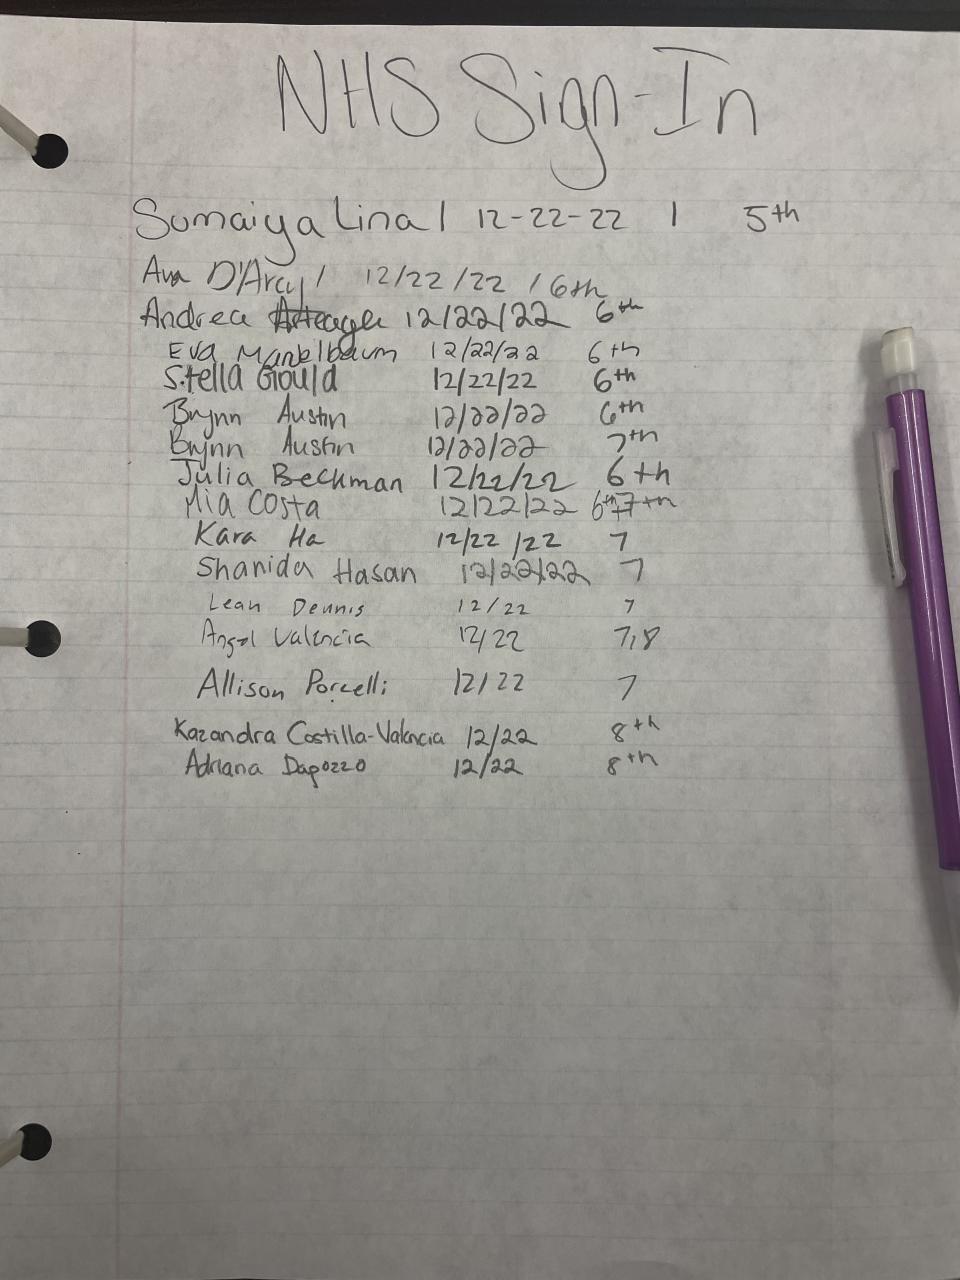 NHS Sign-In
Sumaiya Lina | 12-22-22 | 5th
Ava D'Arcy / 12/22/22 / 6th
Andrea Arteaga 12/22/22 6th
Eva Mandelbaum 12/22/22 6th
Stella Gould 12/22/22 6th
Brynn Austin 12/22/22 6th
Brynn Austin 12/22/22 7th
Julia Beckman 12/22/22 6th
Mia Costa 12/22/22 6th 7th
Kara Ha 12/22/22 7
Shanida Hasan 12/22/22 7
Leah Dennis 12/22 7
Angel Valencia 12/22 7,8
Allison Porcelli 12/22 7
Kazandra Costilla-Valencia 12/22 8th
Adriana Dapozzo 12/22 8th